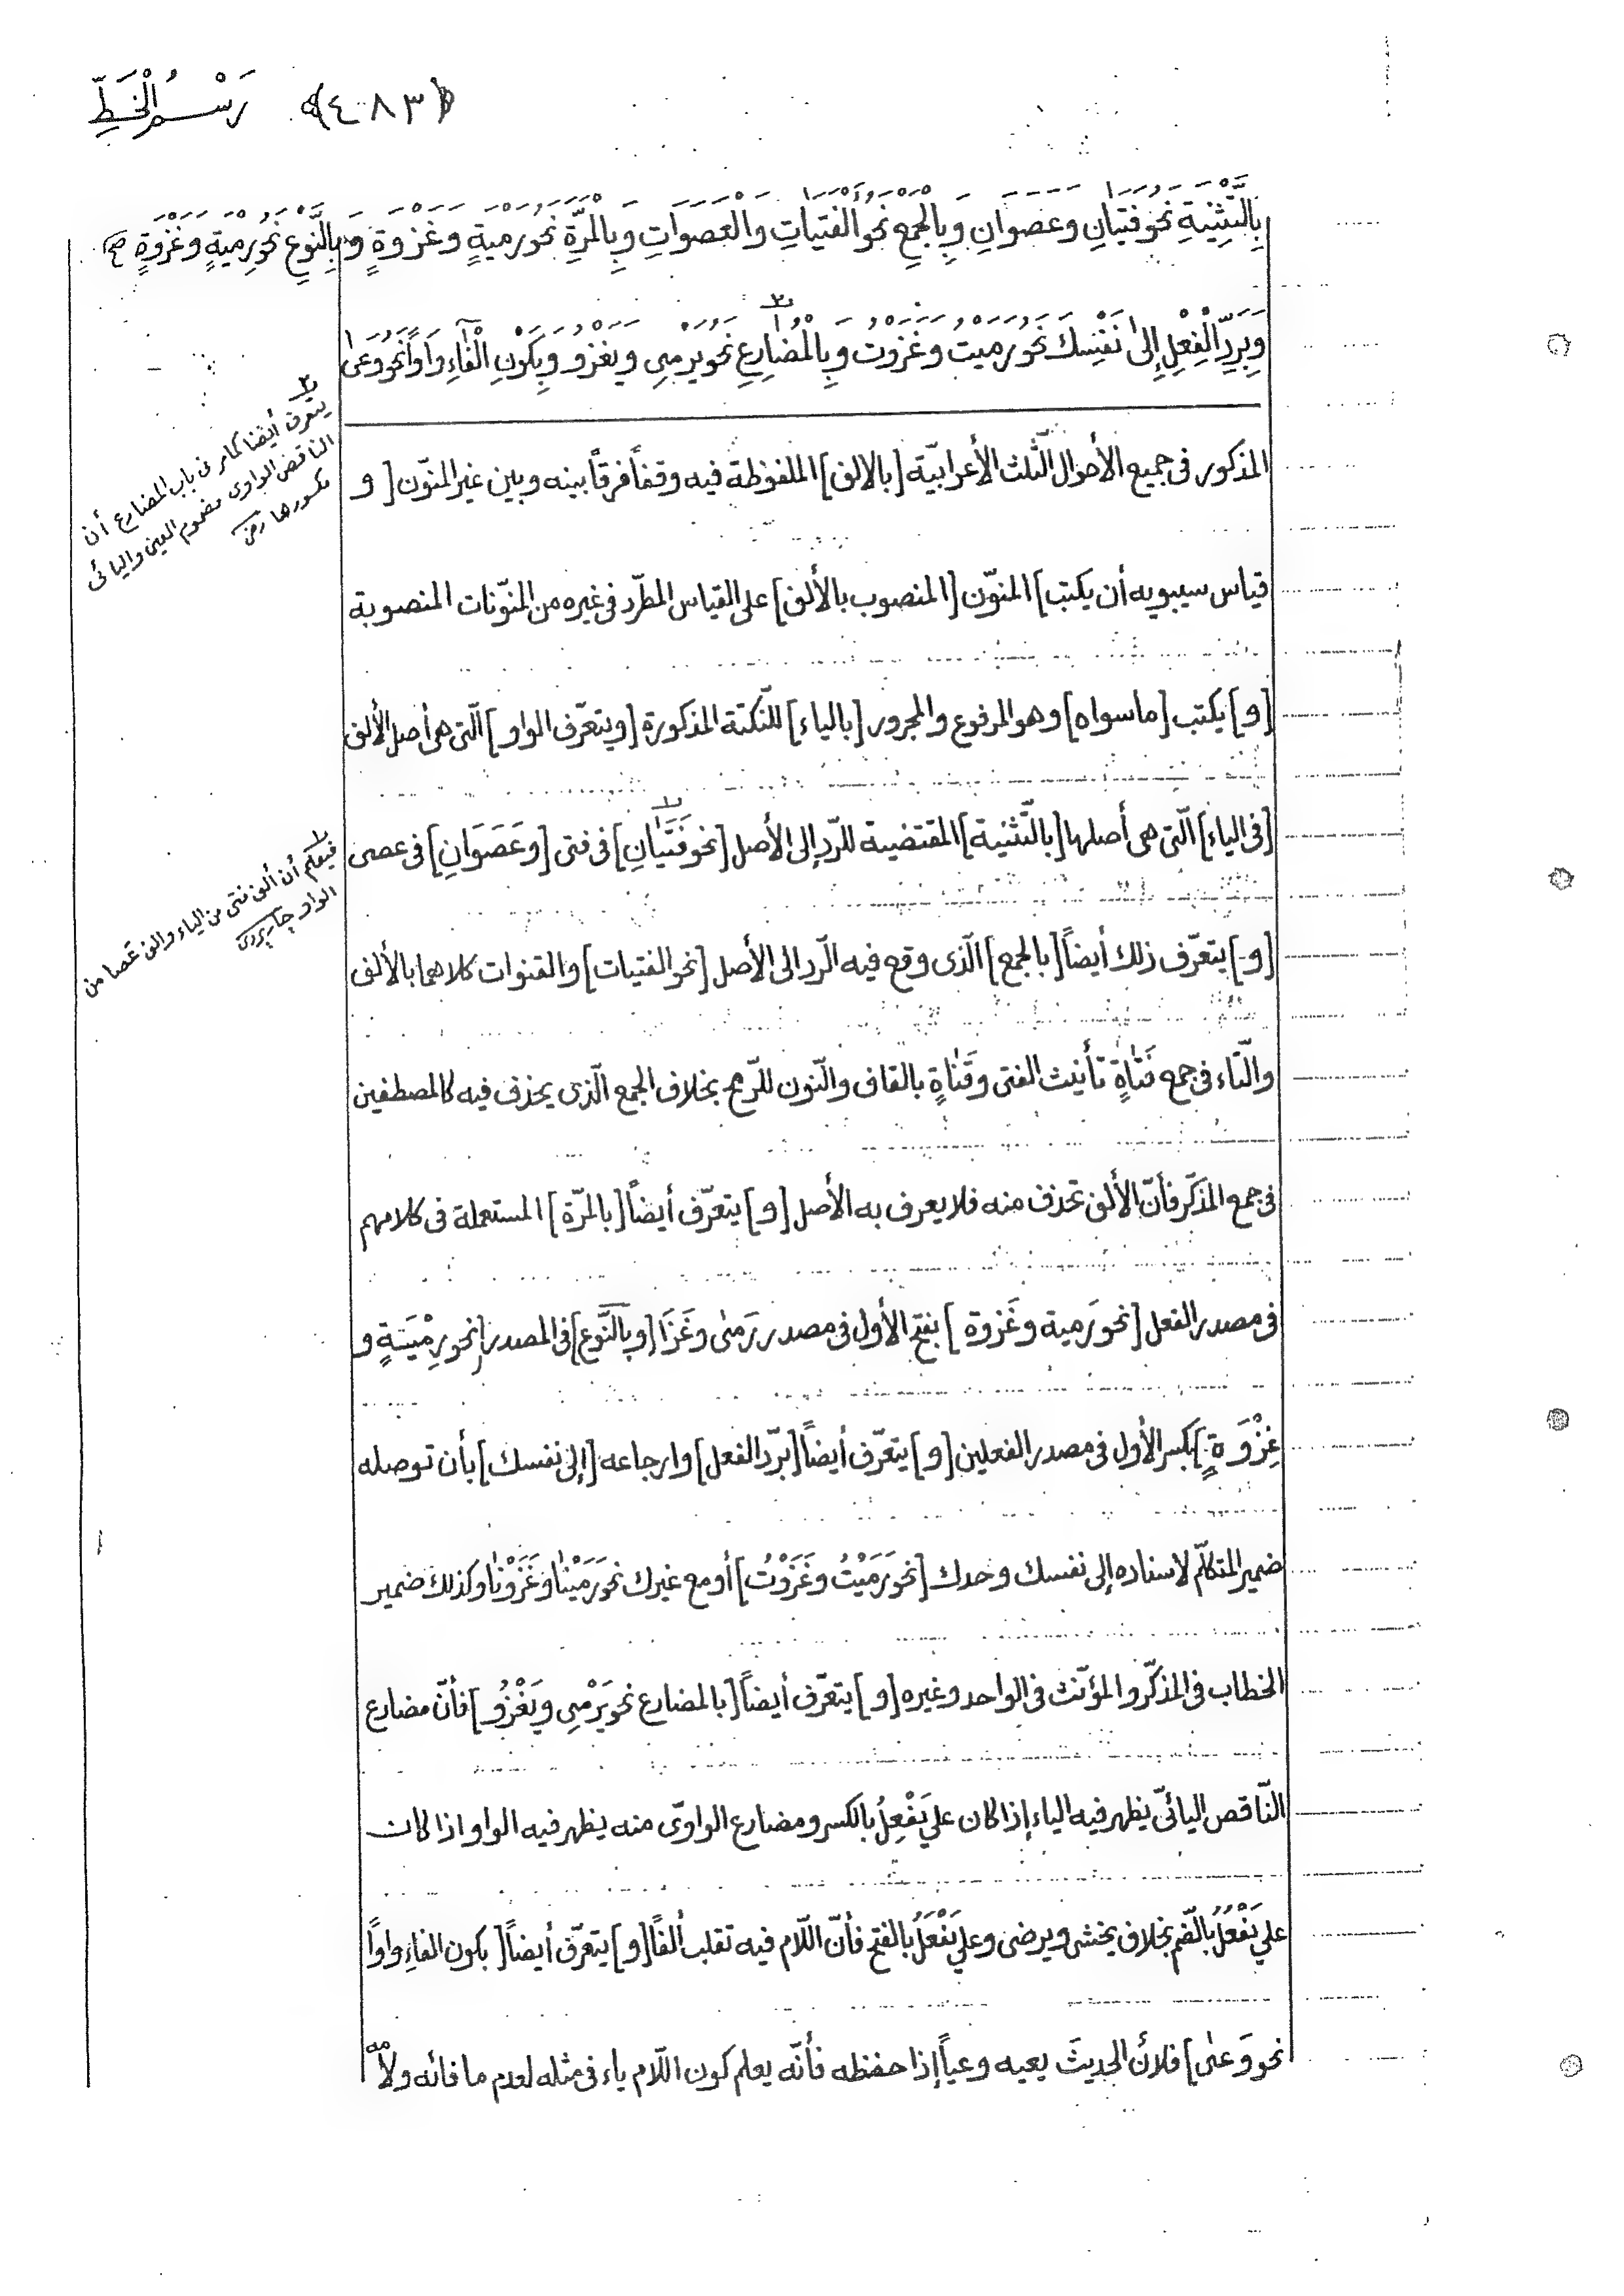 رَسْمُ الْخَطِّ ﴿٤٨٣﴾
بِالتَّثْنِيَةِ نَحْوُ فَتَيَانِ وَعَصَوَانِ وَبِالْجَمْعِ نَحْوُ الْفَتَيَاتِ وَالْعَصَوَاتِ وَبِالْمَرَّةِ نَحْوُ رَمْيَةٍ وَغَزْوَةٍ وَبِالنَّوْعِ نَحْوُ رِمْيَةٍ وَغِزْوَةٍ صح
وَبِرَدِّ الْفِعْلِ إِلىٰ نَفْسِكَ نَحْوُ رَمَيْتُ وَغَزَوْتُ وَبِالْمُضَارِعِ نَحْوُ يَرْمِى وَيَغْزُو وَبِكَوْنِ الْفَاءِ وَاوًا نَحْوُ وَعَىٰ
المذكور فى جميع الأحوال الثّلث الأعرابيّة [بالالف] الملفوظة فيه وقفاً فرقاً بينه وبين غير المنوّن [و
قياس سيبويه أن يكتب] المنوّن [المنصوب بالألف] على القياس المطرّد فى غيره من المنوّنات المنصوبة
[و] يكتب [ما سواه] وهو المرفوع والمجرور [بالياء] للنّكتة المذكورة [ويتعرّف الواو] الّتى هى أصل الألف
[فى الياء] الّتى هى أصلها [بالتّثنية] المقتضية للرّد إلى الأصل [نحو فَتَيَانِ] فى فتى [وعَصَوَانِ] فى عصى
[و] يتعرّف ذلك أيضاً [بالجمع] الّذى وقع فيه الرّد الى الأصل [نحو الفتيات] والقنوات كلاهما بالألف
والتّاء فى جمع فَتاةٍ تأنيث الفتى وقَناةٍ بالقاف والنّون للرّمح بخلاف الجمع الّذى يحذف فيه كالمصطفين
فى جمع المذكّر فأنّ الألف تحذف منه فلا يعرف به الأصل [و] يتعرّف أيضاً [بالمرّة] المستعملة فى كلامهم
فى مصدر الفعل [نحو رَمية وغَزوة] بفتح الأول فى مصدر رَمىٰ وغَزَا [وبالنَّوع] فى المصدر [نحو رِمْيَةٍ و
غِزْوَةٍ] بكسر الأول فى مصدر الفعلين [و] يتعرّف أيضاً [بردّ الفعل] وارجاعه [إلى نفسك] بأن توصله
ضمير المتكلّم لاسناده إلى نفسك وحدك [نحو رَمَيْتُ وغَزَوْتُ] أو مع غيرك نحو رَمَيْنا وغَزَوْنا وكذلك ضمير
الخطاب فى المذكّر والمؤنّث فى الواحد وغيره [و] يتعرّف أيضاً [بالمضارع نحو يَرْمِى ويَغْزُو] فأنّ مضارع
النّاقص اليائىّ يظهر فيه الياء إذا كان على يَفْعِلُ بالكسر ومضارع الواوىّ منه يظهر فيه الواو اذا كان
على يَفْعُلُ بالضّم بخلاف يخشى ويرضى وعلى يَفْعَلُ بالفتح فأنّ اللّام فيه تقلب ألفًا [و] يتعرّف أيضاً [بكون الفاءِ واواً
نحو وَعىٰ] فلان الحديثَ يعيه وعياً إذا حفظه فأنّه يعلم كون اللّام ياء فى مثله لعدم ما فائه ولامه
يتعرف أيضا كما مر فى باب المضارع أن
الناقص الواوى مضموم العين واليائى
مكسورها رضى
فيعلم أن ألف فتى من الياء والف عصا من
الواو جاربردى